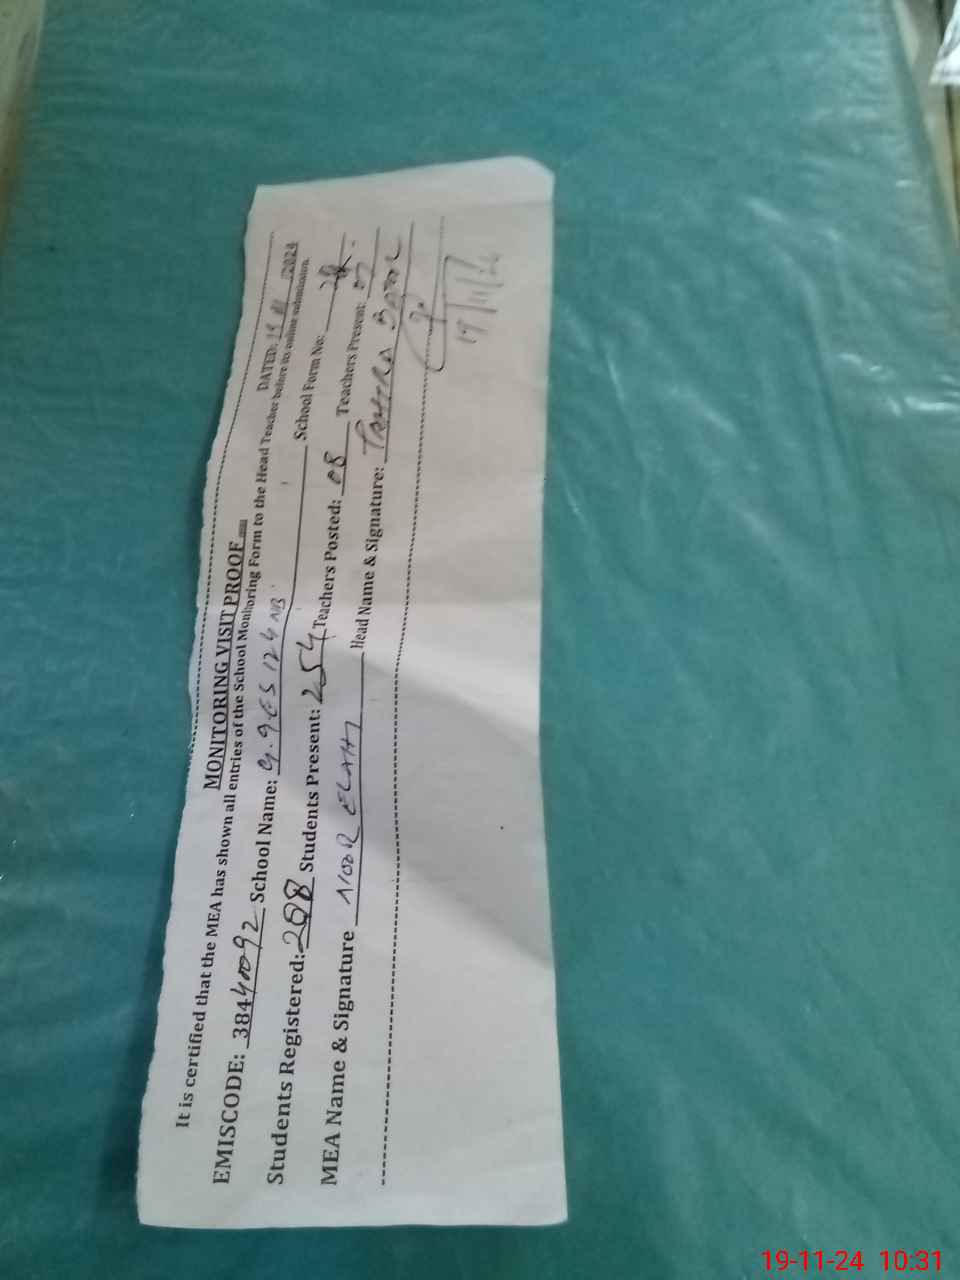 MONITORING VISIT PROOF
DATED: 19 11 /2024
It is certified that the MEA has shown all entries of the School Monitoring Form to the Head Teacher before its online submission.
EMISCODE: 38440092 School Name: G.GES 124 NB School Form No:
Students Registered: 288 Students Present: 254 Teachers Posted: 08 Teachers Present: 07
MEA Name & Signature NOOR ELAHI Head Name & Signature:
19/11/24
19-11-24 10:31